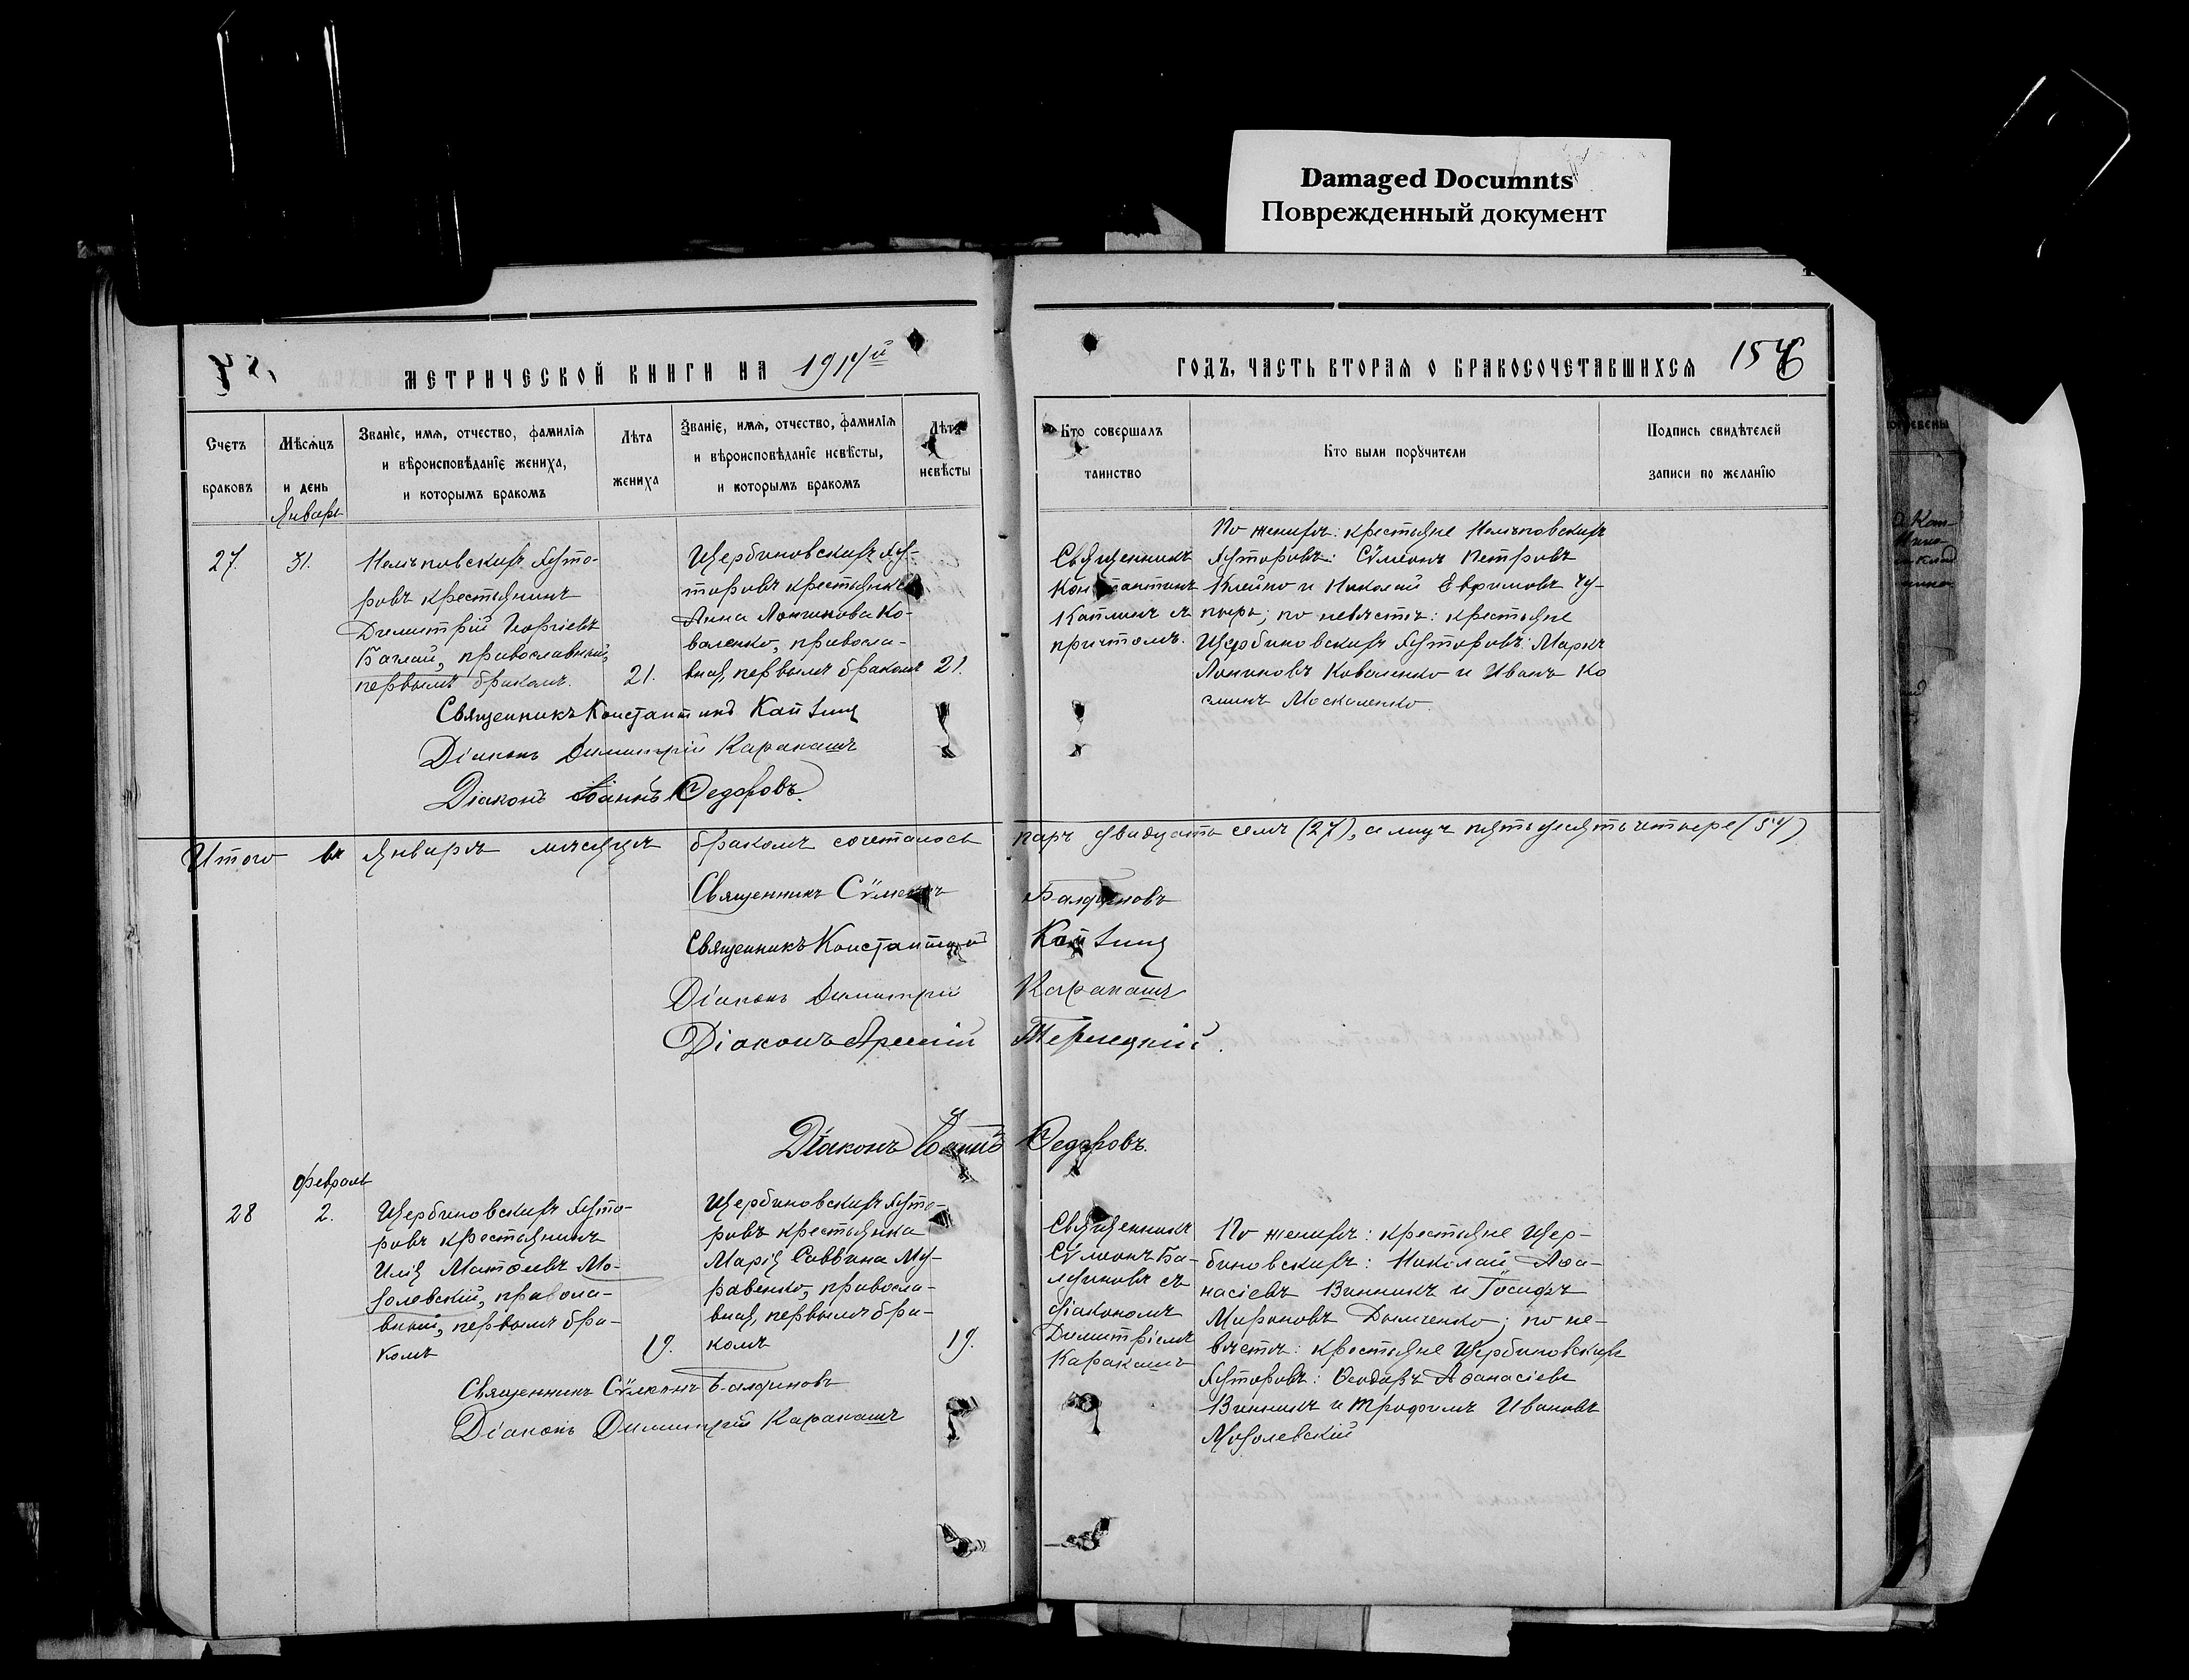 Damaged Documnts
Поврежденный документ
МЕТРИЧЕСКОЙ КНИГИ НА 1914й
ГОДЪ, ЧАСТЬ ВТОРАЯ О БРАКОСОЧЕТАВШИХСЯ 154
Счетъ браковъ
Мѣсяцъ и день
Званіе, имя, отчество, фамилія и вѣроисповѣданіе жениха, и которымъ бракомъ
Лѣта жениха
Званіе, имя, отчество, фамилія и вѣроисповѣданіе невѣсты, и которымъ бракомъ
Лѣта невѣсты
Кто совершалъ таинство
Кто были поручители
Подпись свидѣтелей записи по желанію
Январь
27.
31.
хуто-
ровъ крестьянинъ
Димитрій Георгіевъ
Баглай, православный,
первымъ бракомъ.
21.
Щербиновскихъ ху-
торовъ крестьянка
Анна Логинова Ко-
валенко, правосла-
вная, первымъ бракомъ
21.
Священникъ
Константинъ
съ
причтомъ.
По женихѣ: крестьяне
хуторовъ: Сѵмеонъ Петровъ
Клейко и Николай Евфимовъ Чу-
пырь; по невѣстѣ: крестьяне
Щербиновскихъ хуторовъ: Маркъ
Логиновъ Коваленко и Иванъ Ко
зминъ Москаленко.
Священникъ Константинъ
Діаконъ Димитрій Каракашъ
Діаконъ Іоаннъ Федоровъ.
Итого въ Январѣ мѣсяцѣ бракомъ сочеталось паръ двадцать семь (27), а лицъ пятьдесятъ четыре (54)
Священникъ Сѵмеонъ Балдиновъ
Священникъ Константинъ
Діаконъ Димитрій Каракашъ
Діаконъ Арсеній Тернецкій.
Діаконъ Іоаннъ Федоровъ.
Февраль
28
2.
Щербиновскихъ хуто-
ровъ крестьянинъ
Илія Матѳіевъ Мо-
золевскій, правосла-
вный, первымъ бра-
комъ
19.
Щербиновскихъ хуто-
ровъ крестьянка
Марія Саввина Му-
равенко, правосла-
вная, первымъ бра-
комъ
19.
Священникъ
Сѵмеонъ Ба-
лдиновъ съ
діакономъ
Димитріемъ
Каракашъ
По женихѣ: крестьяне Щер-
биновскихъ: Николай Аѳа-
насіевъ Винникъ и Іосифъ
Мироновъ Дымченко; по не-
вѣстѣ: крестьяне Щербиновскихъ
хуторовъ: Ѳеодоръ Аѳанасіевъ
Винникъ и Трофимъ Ивановъ
Мозолевскій
Священникъ Сѵмеонъ Балдиновъ
Діаконъ Димитрій Каракашъ